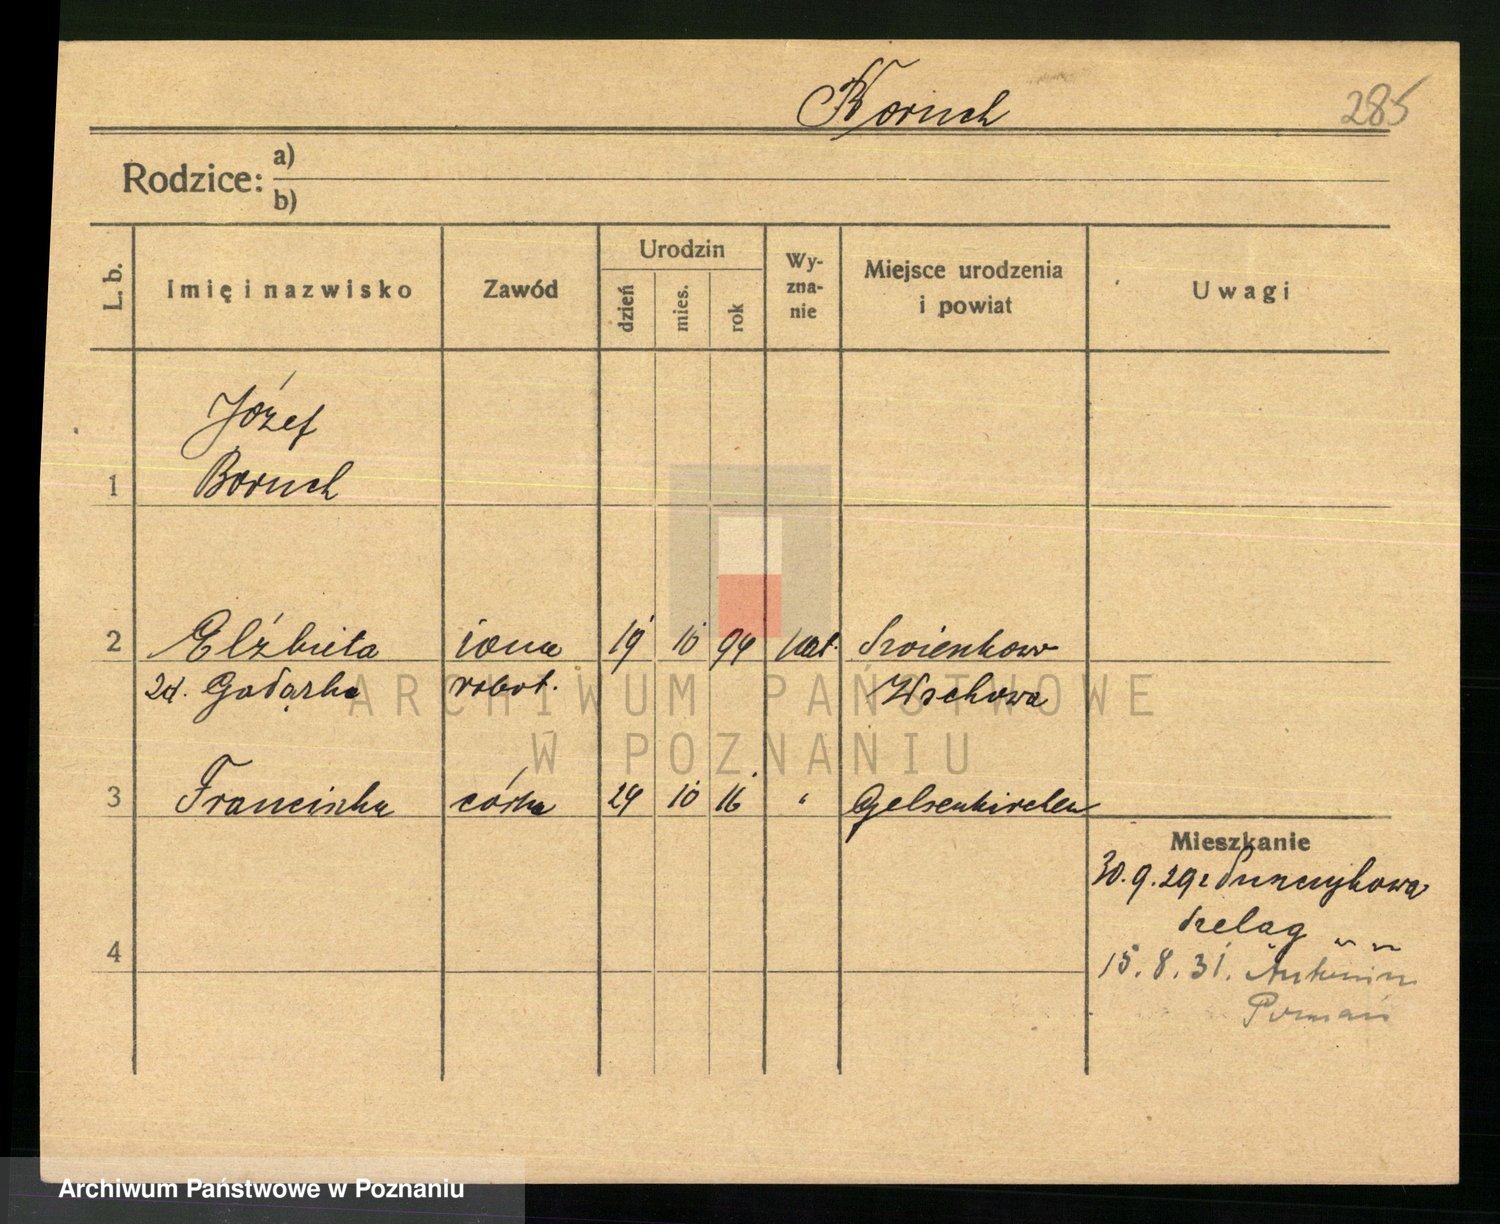 Boruch
285
Rodzice: a)
b)
L. b.
Imię i nazwisko
Zawód
Urodzin
dzień
mies.
rok
Wy-
zna-
nie
Miejsce urodzenia
i powiat
Uwagi
Józef
1 Boruch
2 Elżbieta żona 19 10 94 kat.
zd. robot. Wschowa
3 Franciszka córka 29 10 16 " Gelsenkirchen
Mieszkanie
30.9.29
Szeląg
4
15.8.31. Antonin
Poznań
ARCHIWUM PAŃSTWOWE
W POZNANIU
Archiwum Państwowe w Poznaniu